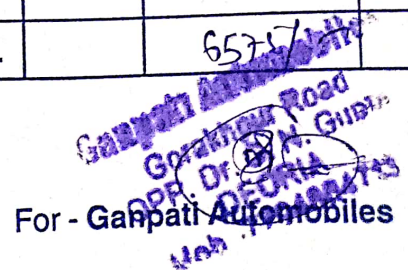 6575/-
Ganpati Automobile
Gorakhpur Road
OPP. Dr. N. Gupta
DEORIA
For - Ganpati Automobiles
Mob.